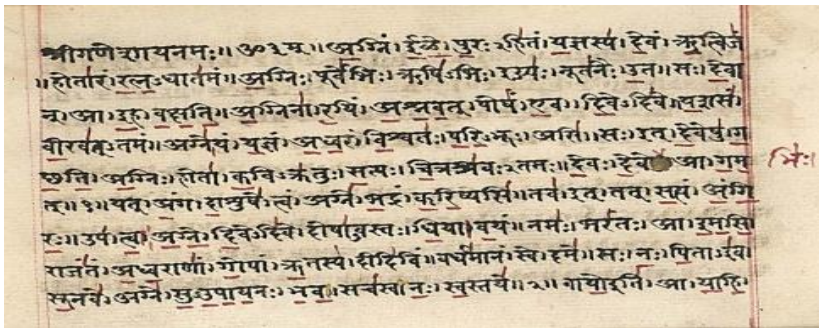 श्रीगणेशायनमः॥ ॐ३म्॥ अग्निं। ईळे। पुरःऽहितं। यज्ञस्य। देवं। ऋत्विजं
॥होतारं। रत्नऽधातमं॥ अग्निः। पूर्वेभिः। ऋषिऽभिः। ईड्यः। नूतनैः। उत॥ सः। देवा
न्। आ। इह। वक्षति॥ अग्निना। रयिं। अश्नवत्। पोषं। एव। दिवेऽदिवे॥ यशसं।
वीरवत्ऽतमं॥ अग्ने। यं। यज्ञं। अध्वरं। विश्वतः। परिऽभूः। असि॥ सः। इत्। देवेषु। ग
छति॥ अग्निः। होता। कविऽक्रतुः। सत्यः। चित्रश्रवःऽतमः॥ देवः। देवे आ। गम
भिः।
त्॥१॥ यत्। अंग। दाशुषे। त्वं। अग्ने। भद्रं। करिष्यसि॥ तव। इत्। तत्। सत्यं। अंगि
रः॥ उप। त्वा। अग्ने। दिवेऽदिवे। दोषाऽवस्तः। धिया। वयं॥ नमः। भरंतः। आ। इमसि
राजंतं। अध्वराणां। गोपां। ऋतस्य। दीदिविं॥ वर्धमानं। स्वे। दमे॥ सः। नः। पिताऽइव
सूनवे। अग्ने। सुऽउपायनः। भव॥ सचस्व। नः। स्वस्तये॥२॥ वायो इति। आ। याहि।